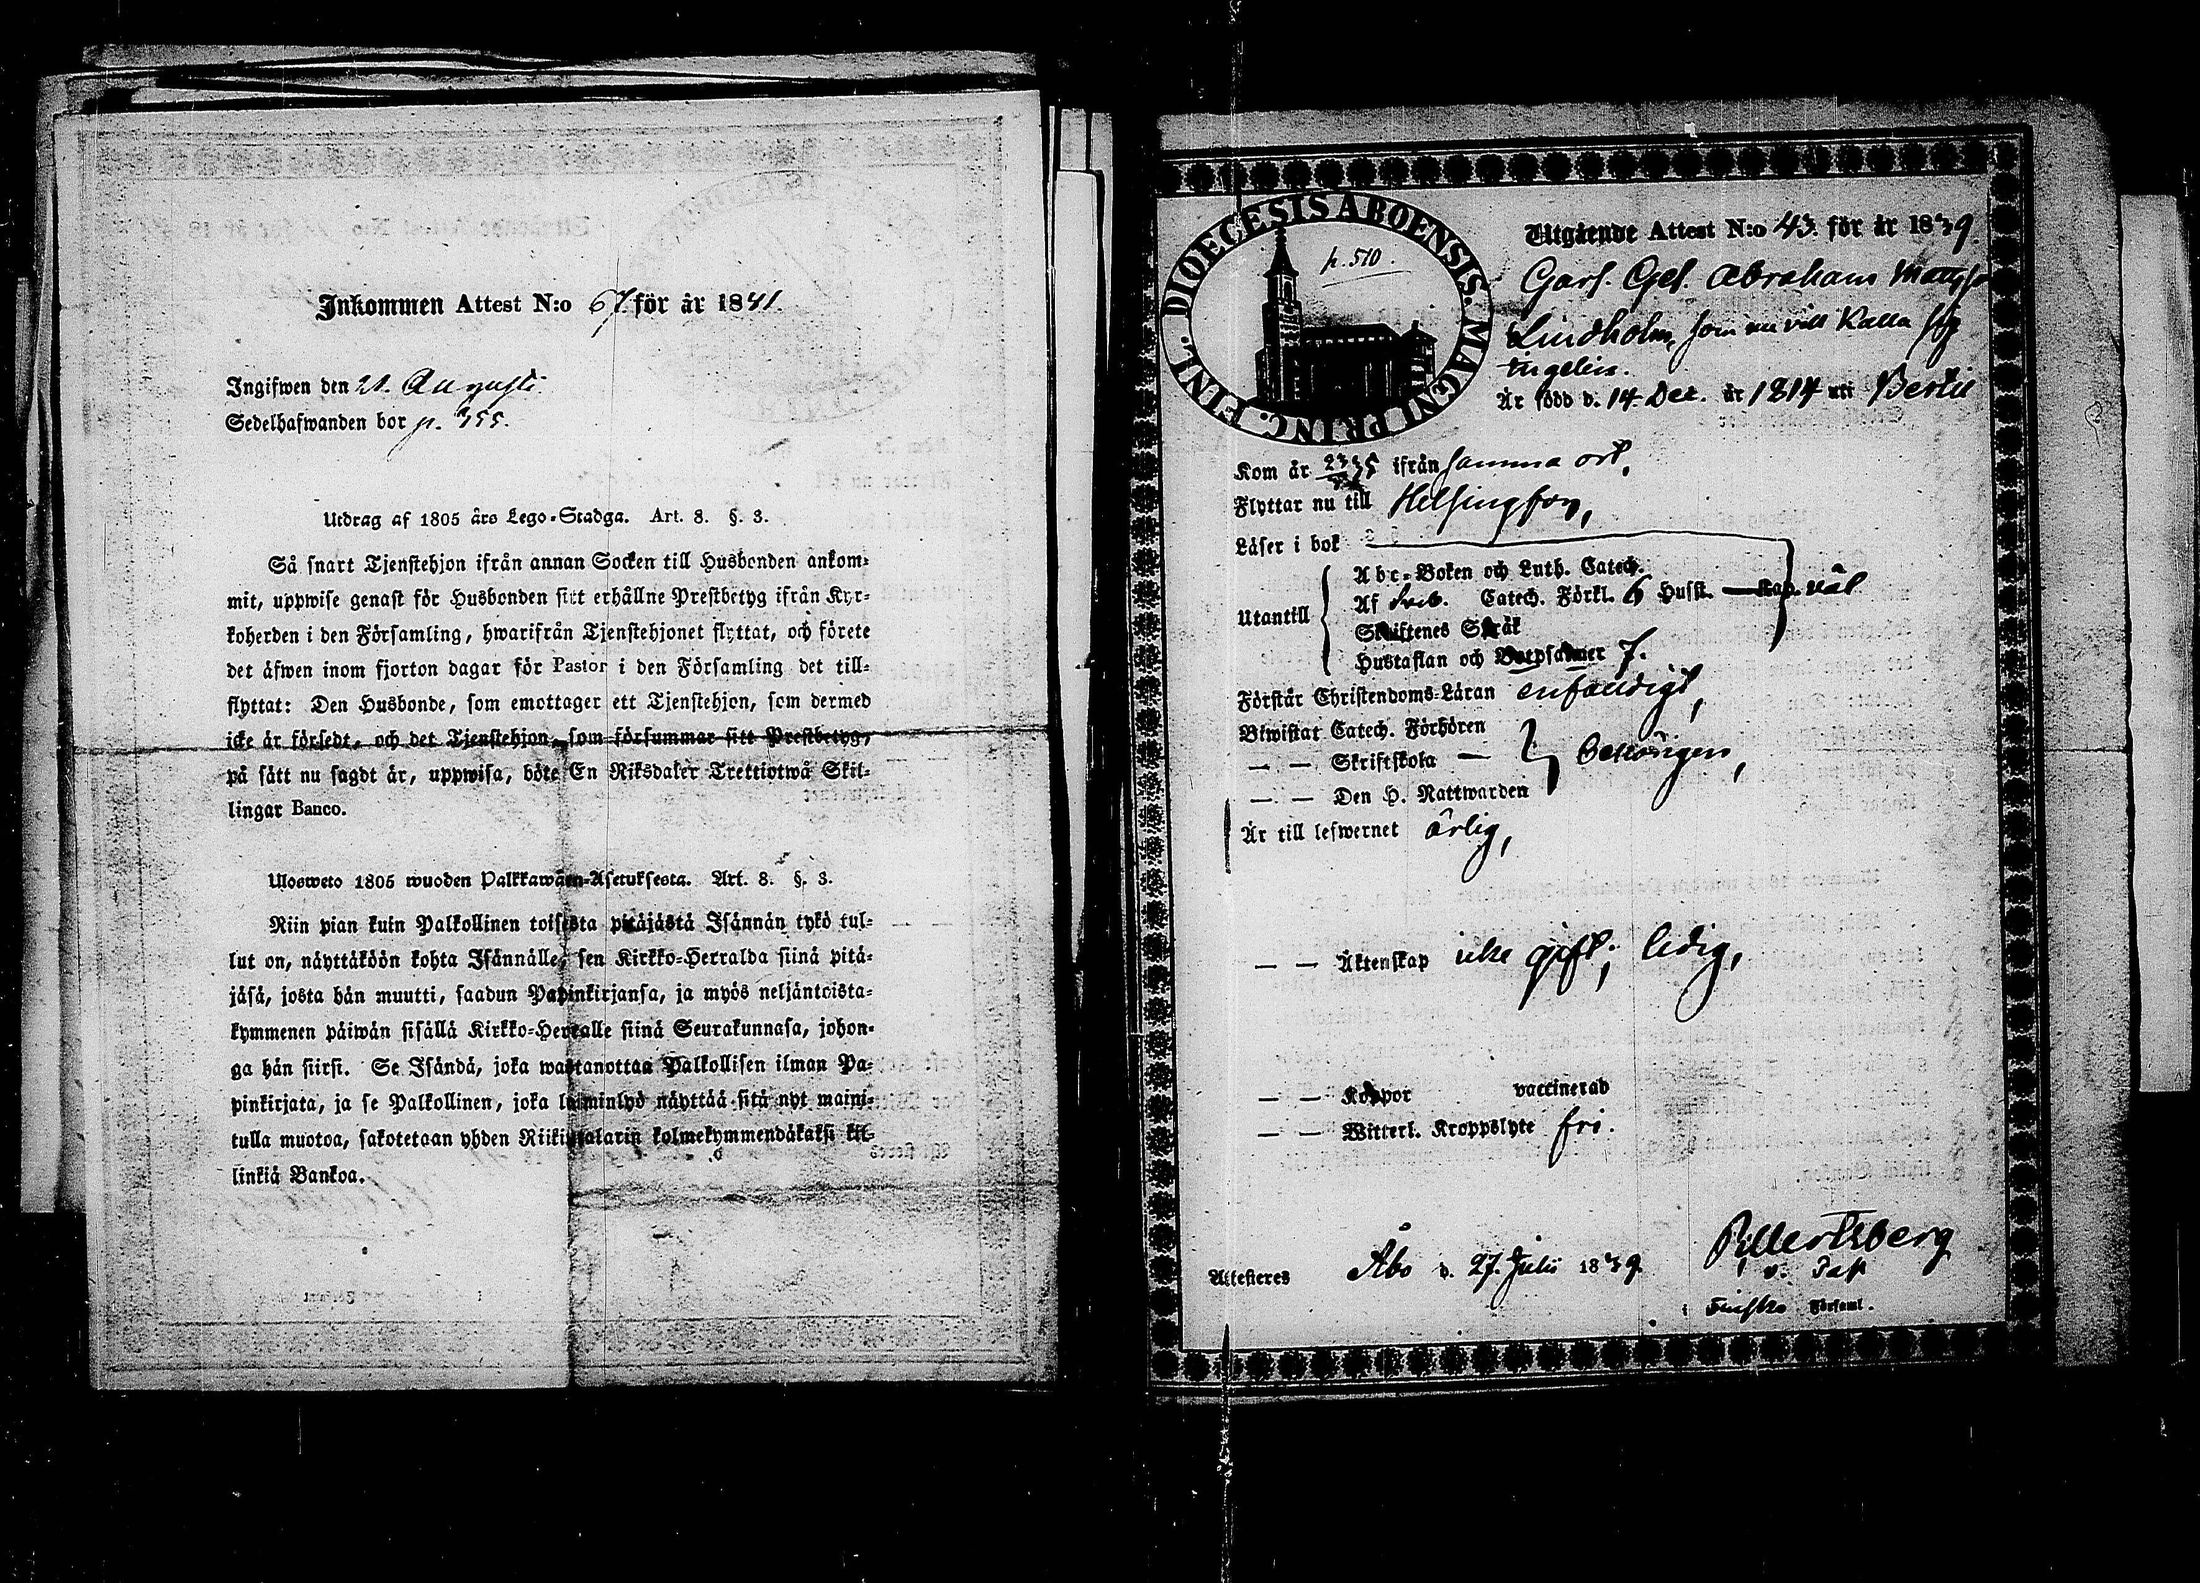 Inkommen Attest N:o 67. för år 1841.
Ingifwen den 21. Augusti.
Sedelhafwanden bor p. 355.
Utdrag af 1805 års Lego-Stadga. Art. 8. §. 3.
Så snart Tjenstehjon ifrån annan Socken till Husbonden ankom-
mit, uppwise genast för Husbonden sitt erhållne Prestbetyg ifrån Kyr-
koherden i den Församling, hwarifrån Tjenstehjonet flyttat, och förete
det äfwen inom fjorton dagar för Pastor i den Församling det till-
flyttat: Den Husbonde, som emottager ett Tjenstehjon, som dermed
icke är försedt, och det Tjenstehjon, som försummar sitt Prestbetyg,
på sätt nu sagdt är, uppwisa, böte En Riksdaler Trettiotwå Skil-
lingar Banco.
Ulosweto 1805 wuoden Palkkawäen-Asetuksesta. Art. 8. §. 3.
Niin pian kuin Palkollinen toisesta pitäjästä Isännän tykö tul-
lut on, näyttäköön kohta Isännälle, sen Kirkko-Herralda siinä pitä-
jäsä, josta hän muutti, saadun Papinkirjansa, ja myös neljäntoista-
kymmenen päiwän sisällä Kirkko-Herralle siinä Seurakunnasa, johon-
ga hän siirsi. Se Isändä, joka wastanottaa Palkollisen ilman Pa-
pinkirjata, ja se Palkollinen, joka laiminlyö näyttää sitä nyt maini-
tulla muotoa, sakotetaan yhden Riikintalarin kolmekymmendäkaksi kil-
linkiä Bankoa.
DIOECESIS ABOENSIS. MAGNI PRINC. FINL.
p. 510.
Utgående Attest N:o 43. för år 1839.
Garf. Ges. Abraham Matts
Lindholm, som nu vill Kalla sig
Är född d. 14. Dec. år 1814 uti
Kom år ifrån samma ort,
Flyttar nu till Helsingfors,
Läser i bok
Utantill
Abc-Boken och Luth. Catech.
Af Catech. Förkl. 6 Hufst. — Kap. väl
Skriftenes Språk
Hustaflan och Botpsalmer 7.
Förstår Christendoms-Läran enfaldigt,
Biwistat Catech. Förhören
— — Skriftskola — behörigen,
— — Den H. Nattwarden
Är till lefwernet ärlig,
— — Äktenskap icke gift; ledig,
— — Koppor vaccinerad
— — Witterl. Kroppslyte fri.
Attesteres Åbo d. 27. Julii 1839.
v. Past
i Finska Församl.